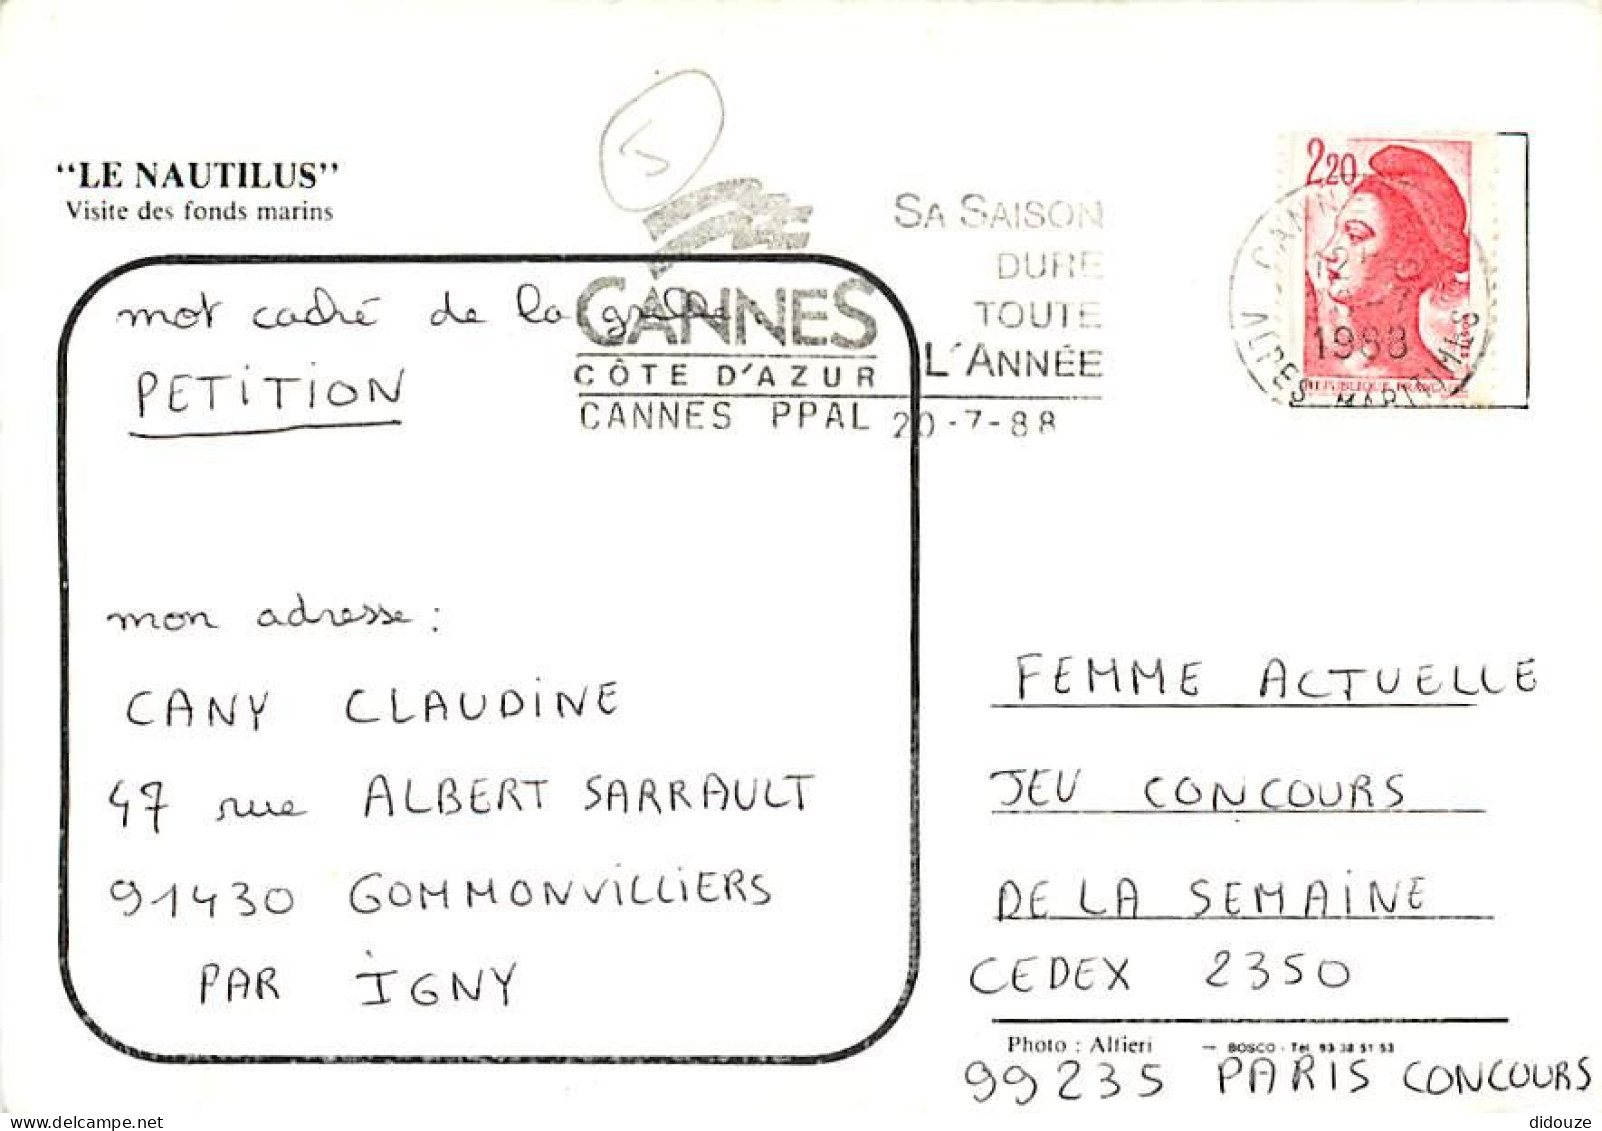 "LE NAUTILUS"
Visite des fonds marins
5
mot cadré de la grille
PETITION
mon adresse :
CANY CLAUDINE
47 rue ALBERT SARRAULT
91430 GOMMONVILLIERS
PAR IGNY
CANNES
CÔTE D'AZUR
CANNES PPAL 20-7-88
SA SAISON
DURE
TOUTE
L'ANNÉE
2,20
1988
ALPES MARITIMES
FEMME ACTUELLE
JEU CONCOURS
DE LA SEMAINE
CEDEX 2350
Photo : Altieri — BOSCO - Tel 93 38 51 53
99235 PARIS CONCOURS
didouze